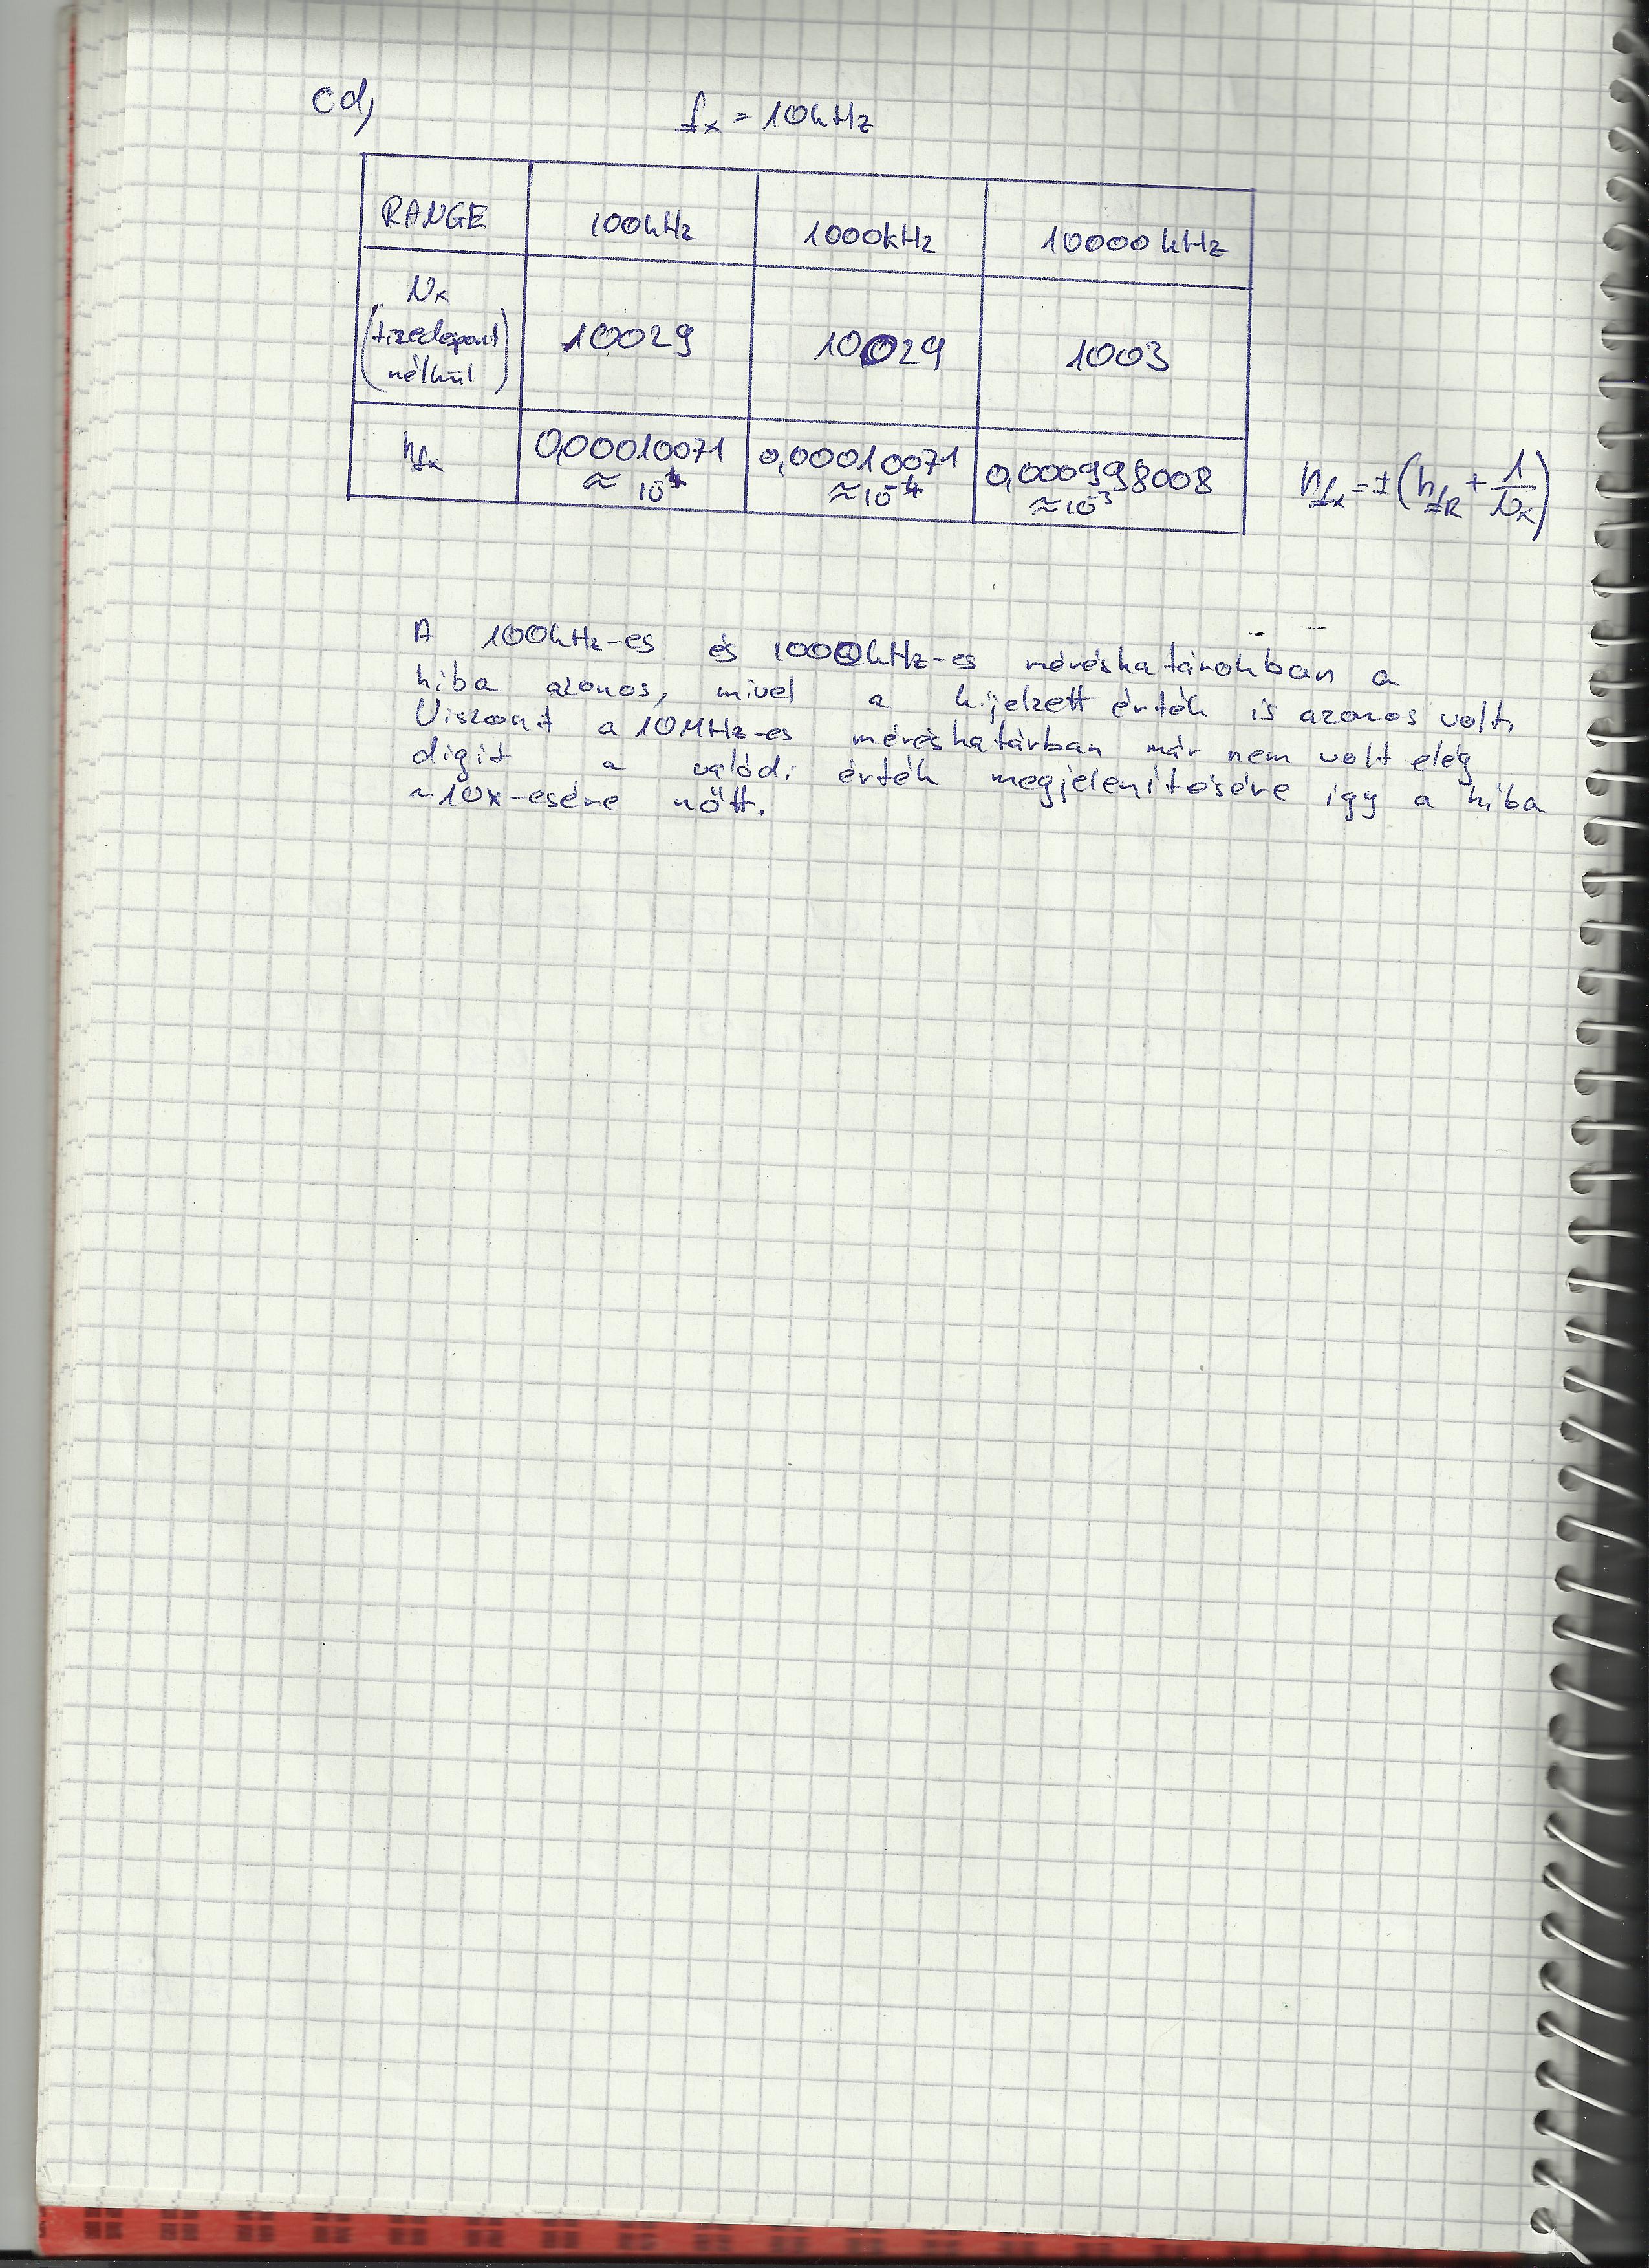 cd,
fx = 10kHz
RANGE 100kHz 1000kHz 10000 kHz
Nx (tizedespont nélkül) 10029 10029 1003
hfx 0,00010071 ≈ 10^-4 0,00010071 ≈ 10^-4 0,000998008 ≈ 10^-3
hfx = ± (hfR + 1/Nx)
A 100kHz-es és 1000kHz-es méréshatárokban a
hiba azonos, mivel a kijelzett érték is azonos volt.
Viszont a 10MHz-es méréshatárban már nem volt elég
digit a valódi érték megjelenítésére így a hiba
~10x-esére nőtt.